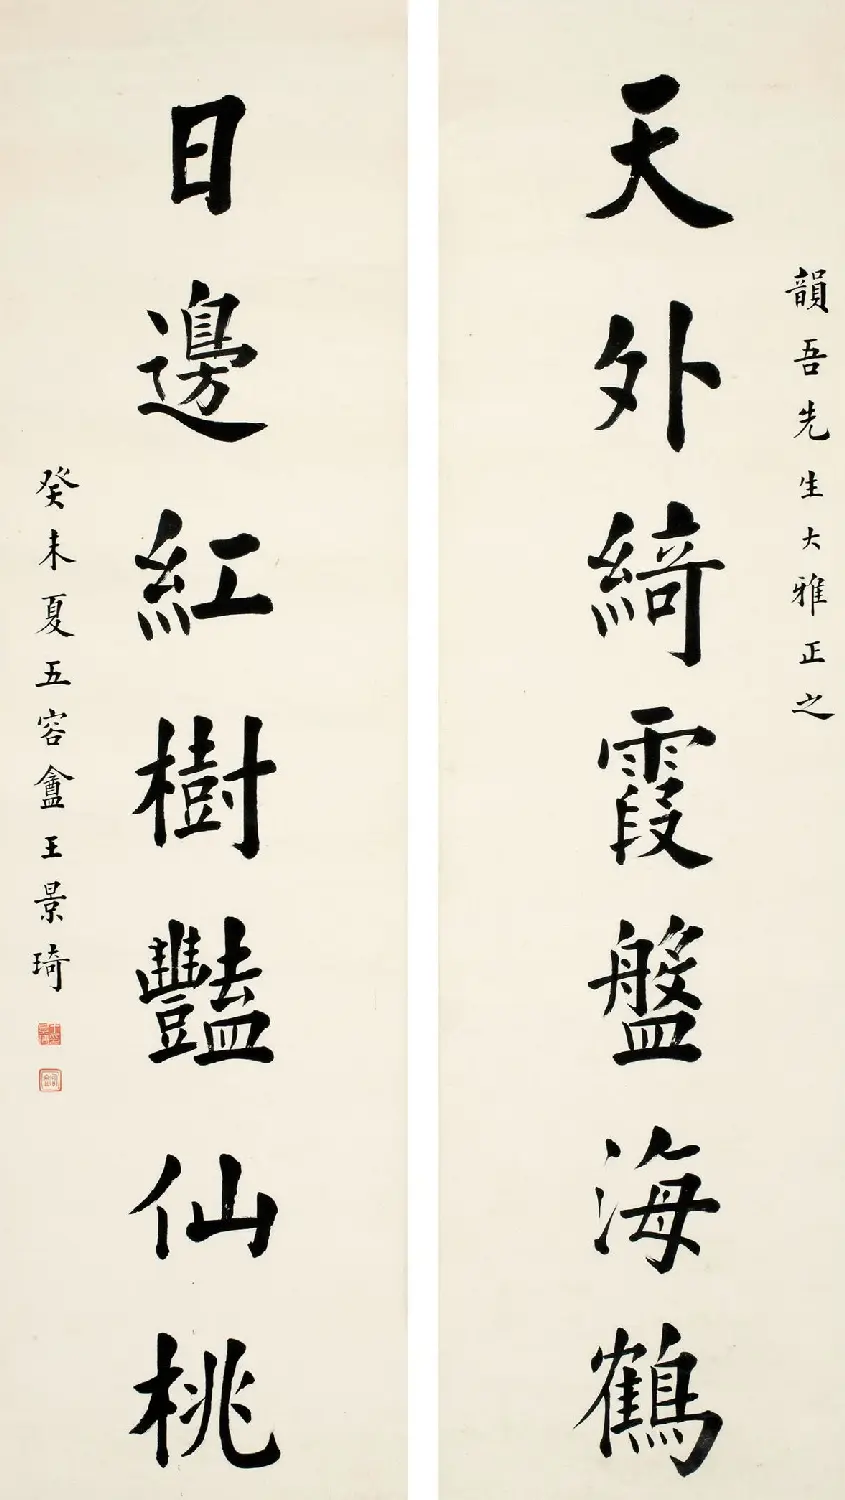 韻吾先生大雅正之
天外綺霞盤海鶴
日邊紅樹豔仙桃
癸未夏五容盦王景琦